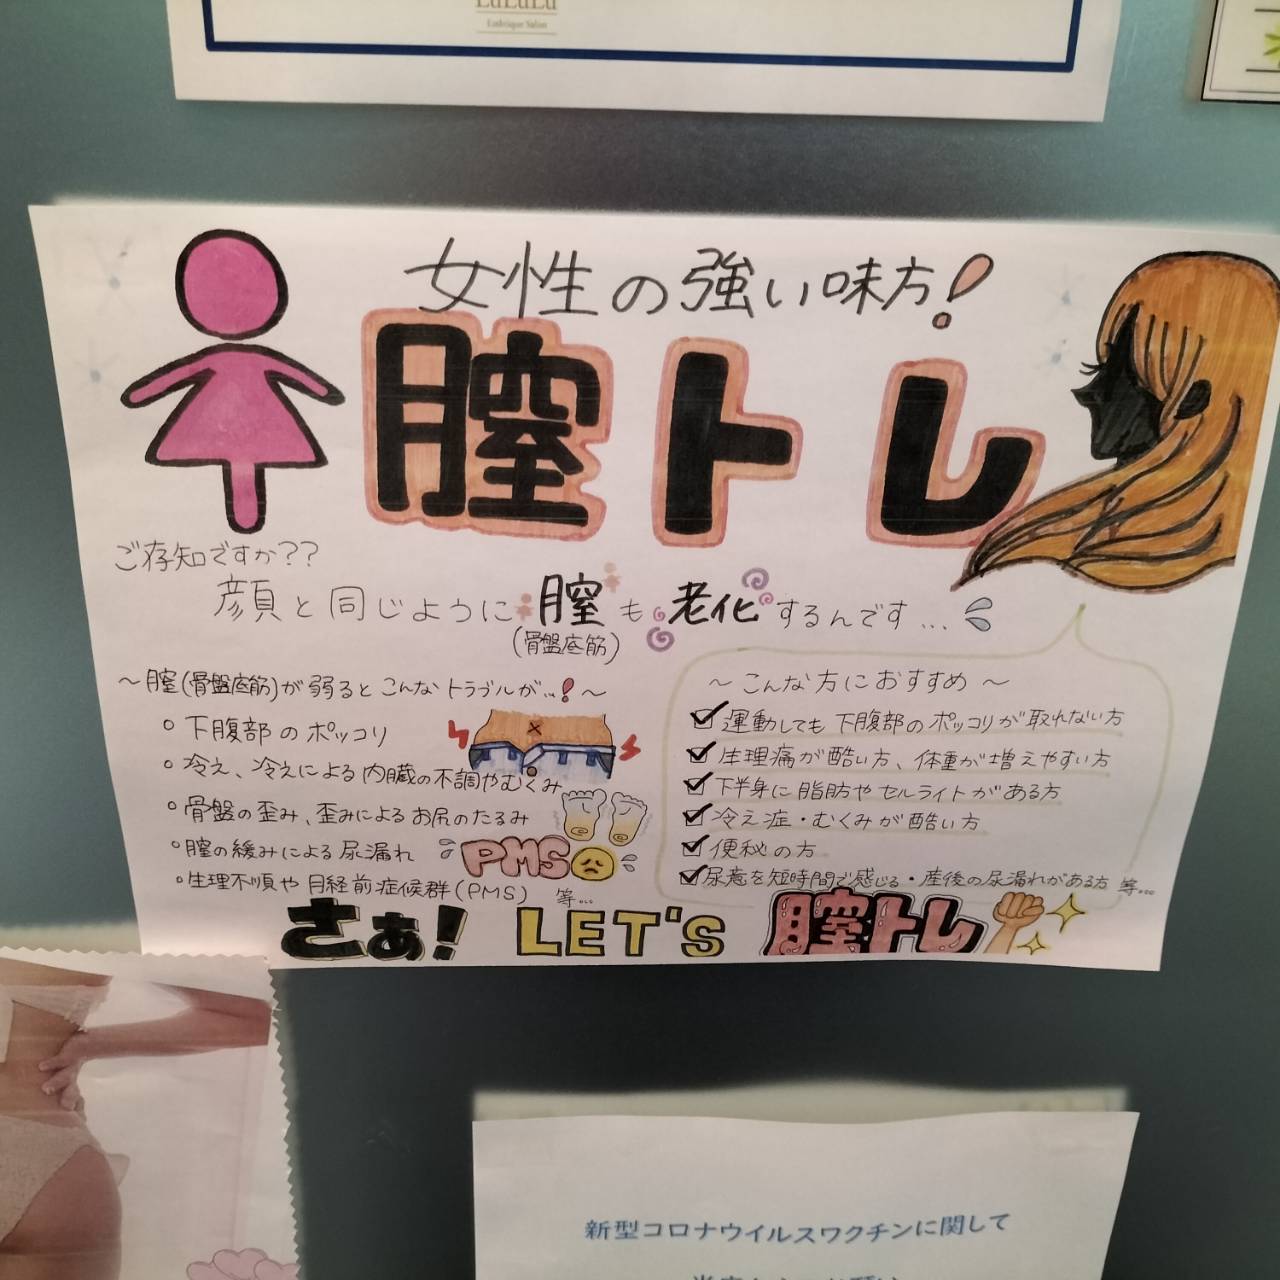 LuLuLu
Esthetique Salon
女性の強い味方!
膣トレ
ご存知ですか??
顔と同じように膣も老化するんです...
(骨盤底筋)
～膣(骨盤底筋)が弱るとこんなトラブルが...!～
○下腹部のポッコリ
○冷え、冷えによる内臓の不調やむくみ
○骨盤の歪み、歪みによるお尻のたるみ
○膣の緩みによる尿漏れ
○生理不順や月経前症候群(PMS) 等...
PMS
～こんな方におすすめ～
☑運動しても下腹部のポッコリが取れない方
☑生理痛が酷い方、体重が増えやすい方
☑下半身に脂肪やセルライトがある方
☑冷え症・むくみが酷い方
☑便秘の方
☑尿意を短時間で感じる・産後の尿漏れがある方 等...
さぁ! LET'S 膣トレ
新型コロナウイルスワクチンに関して